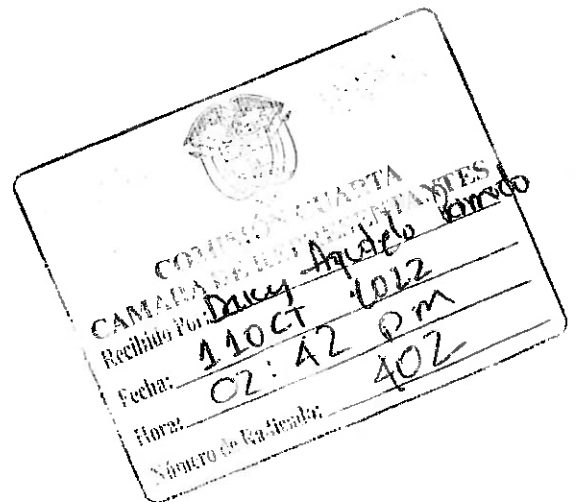 COMISIÓN CUARTA
CAMARA DE REPRESENTANTES
Recibido Por: Daicy Agudelo
Fecha: 11 OCT 2022
Hora: 02:42 pm
Número de Radicado: 402